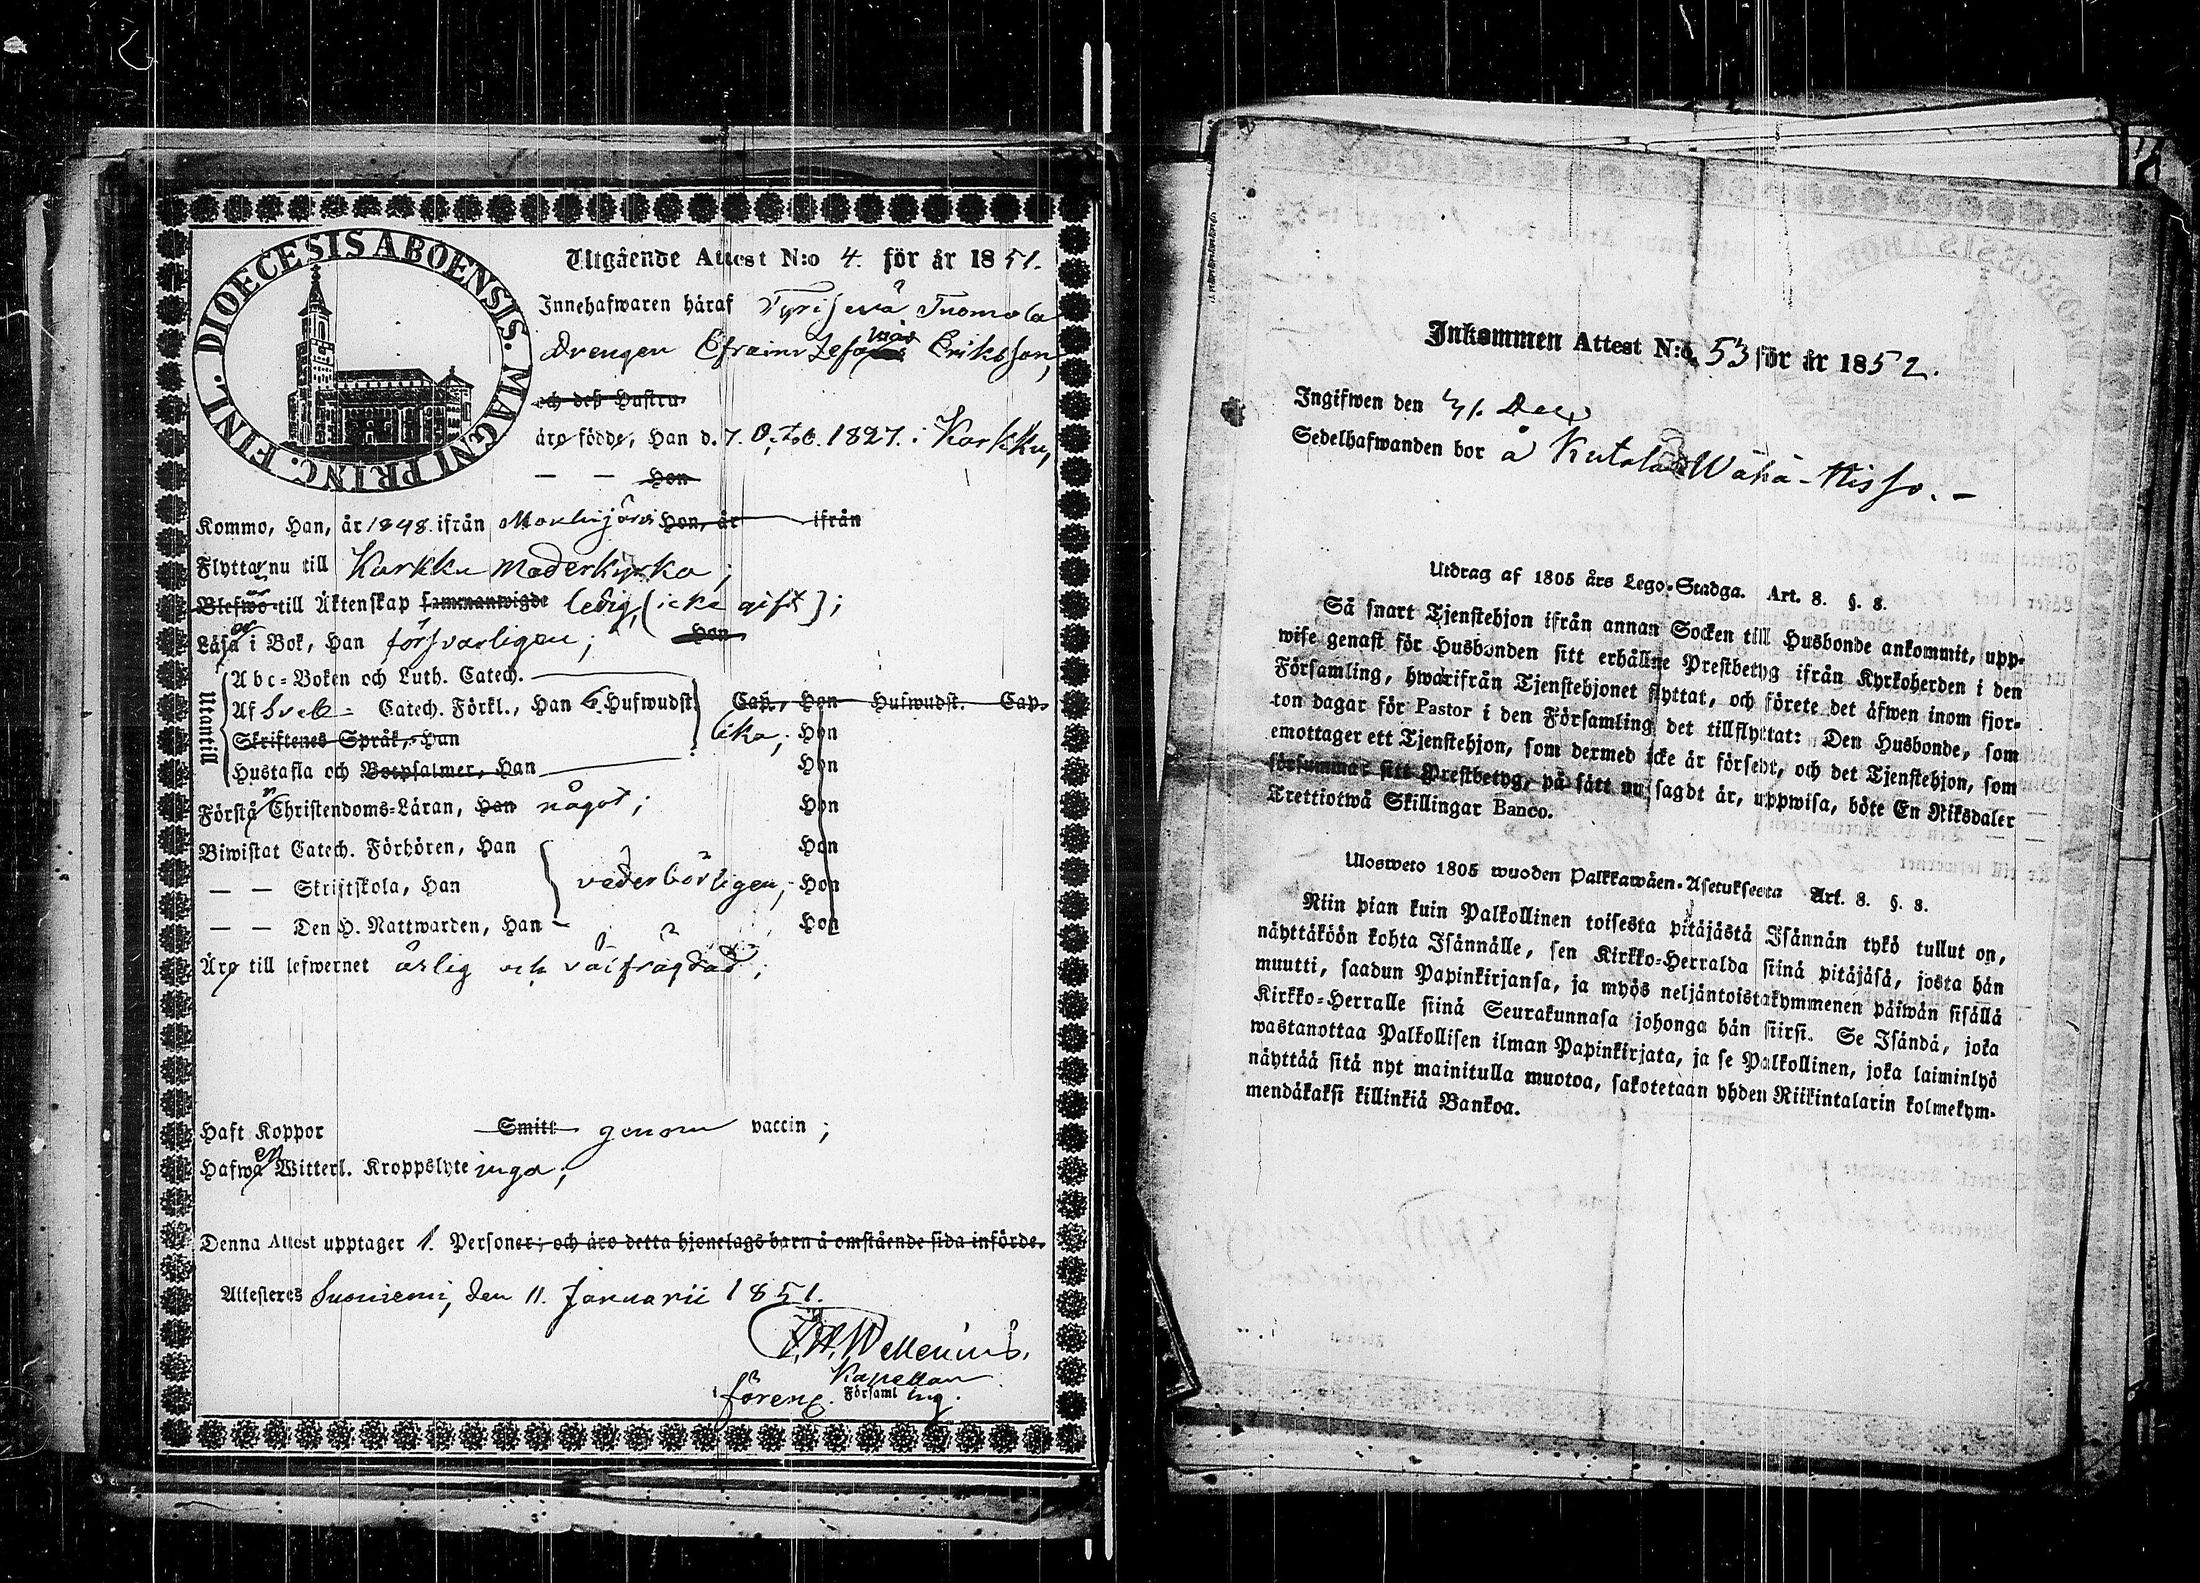 DIOECESIS ABOENSIS. MAGNI PRINC. FINL.
Utgående Attest N:o 4. för år 1851.
Innehafwaren häraf Tyrisevä Tuomola
Drengen Efraim Eriksson,
och deß Hustru
äro födde, Han d. 7. Octob. 1827. i Karkku,
— — Hon
Kommo, Han, år 1848. ifrån Mouhijärvi Hon, år ifrån
Flytta nu till Karkku Moderkyrka;
Blefwo till Äktenskap sammanwigde ledig, (icke gift);
Läsa i Bok, Han försvarligen; Hon
Utantill
Abc-Boken och Luth. Catech.
Af Sveb. Catech. Förkl., Han 6. Hufwudst. Cap., Hon Hufwudst. Cap.
Skriftenes Språk, Han lika; Hon
Hustafla och Botpsalmer, Han Hon
Förstå Christendoms-Läran, Han något; Hon
Biwistat Catech. Förhören, Han Hon
— — Skriftskola, Han vederbörligen; Hon
— — Den H. Nattwarden, Han Hon
Äro till lefwernet ärlig och välfrägdad;
Haft Koppor Smitt genom vaccin;
Hafwa Witterl. Kroppslyte inga;
Denna Attest upptager 1. Personer; och äro detta hjonelags barn å omstående sida införde.
Attesteras Suoniemi, den 11. Januarii 1851.
Wellenius.
Kapellan
i föreng. Församl ing.
Inkommen Attest N:o 53 för år 1852.
Ingifwen den 31. Dec
Sedelhafwanden bor å Kutala Wähä-Hisso. —
Utdrag af 1805 års Lego-Stadga. Art. 8. §. 8.
Så snart Tjenstehjon ifrån annan Socken till Husbonde ankommit, upp-
wise genast för Husbonden sitt erhållne Prestbetyg ifrån Kyrkoherden i den
Församling, hwarifrån Tjenstehjonet flyttat, och förete det äfwen inom fjor-
ton dagar för Pastor i den Församling det tillflyttat: Den Husbonde, som
emottager ett Tjenstehjon, som dermed icke är försedt, och det Tjenstehjon, som
försummar sitt Prestbetyg, på sätt nu sagdt är, uppwisa, böte En Riksdaler
Trettiotwå Skillingar Banco.
Ulosweto 1805 wuoden Palkkawäen-Asetuksesta Art. 8. §. 8.
Niin pian kuin Palkollinen toisesta pitäjästä Isännän tykö tullut on,
näyttäköön kohta Isännälle, sen Kirkko-Herralda siinä pitäjäsä, josta hän
muutti, saadun Papinkirjansa, ja myös neljäntoistakymmenen päiwän sisällä
Kirkko-Herralle siinä Seurakunnasa johonga hän siirsi. Se Isändä, joka
wastanottaa Palkollisen ilman Papinkirjata, ja se Palkollinen, joka laiminlyö
näyttää sitä nyt mainitulla muotoa, sakotetaan yhden Riikintalarin kolmekym-
mendäkaksi killinkiä Bankoa.